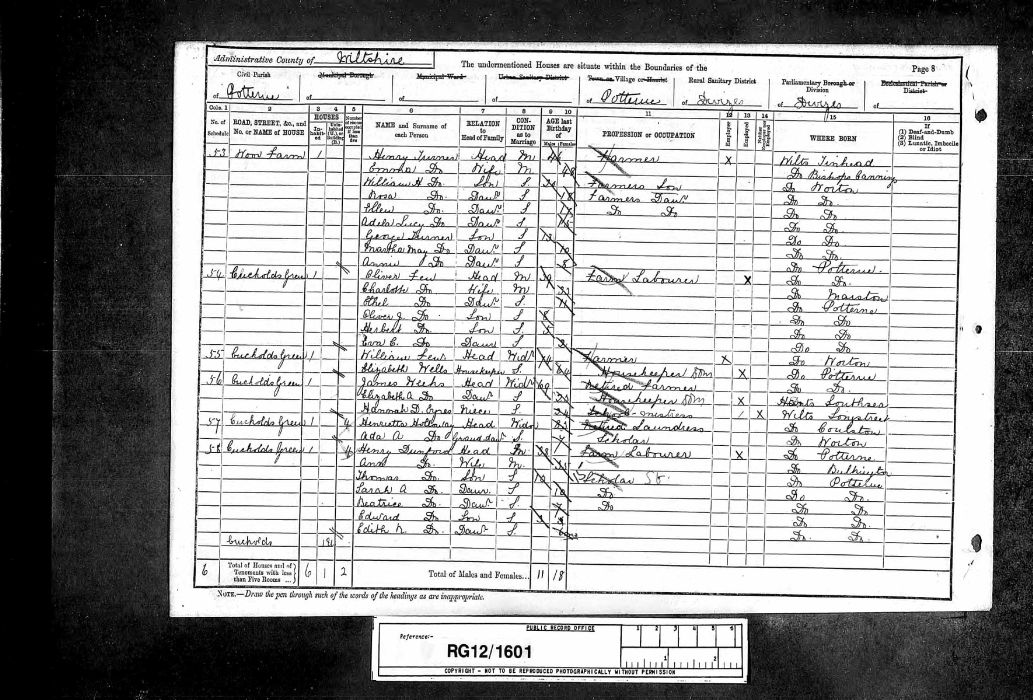 Administrative County of Wiltshire The undermentioned Houses are situate within the Boundaries of the Page 8
Civil Parish Municipal Borough Municipal Ward Urban Sanitary District Town or Village or Hamlet Rural Sanitary District Parliamentary Borough or Division Ecclesiastical Parish or District
of Potterne of of of of Potterne of Devizes of Devizes of
Cols. 1 2 3 4 5 6 7 8 9 10 11 12 13 14 15 16
No. of Schedule ROAD, STREET, &c., and No. or NAME of HOUSE HOUSES Inhabited NAME and Surname of each Person RELATION to Head of Family CONDITION as to Marriage AGE last Birthday of Males Females PROFESSION or OCCUPATION Employer Employed WHERE BORN (1) Deaf-and-Dumb (2) Blind (3) Lunatic, Imbecile or Idiot
53 Farm 1 Henry Turner Head M Farmer X Wilts Tinhead
Emma Do Wife M Do Bishops Canning
William H Do Son S Farmers Son Do Worton
Rosa Do Daur S Farmers Daur Do Do
Ellen Do Daur S Do Do Do Do
Adela Lucy Do Daur S Do Do
George Turner Son S Do Do
Martha May Do Daur S Do Do
Annie Do Daur S 8 Do Potterne
54 Cucholds Green 1 Oliver Few Head M Farm Labourer X Do Do
Charlotte Do Wife M Do Marston
Ethel Do Daur S Do Potterne
Oliver J Do Son S 8 Do Do
Herbert Do Son S 5 Do Do
Eva E. Do Daur S 2 Do Do
55 Cucholds Green 1 William Few Head Widr Farmer X Do Worton
Elizabeth Wells Housekeeper S. Housekeeper Dom X Do Potterne
56 Cucholds Green 1 James Weeks Head Widr 69 Retired Farmer Do Do
Elizabeth A Do Daur S Housekeeper Dom X Hants Southsea
Hannah D. Niece S School-mistress X Wilts
57 Cucholds Green 1 4 Henrietta Holloway Head Wido Retired Laundress Do Coulston
Ada A Do Grand daur S. Scholar Do Worton
58 Cucholds Green 1 Henry Dunford Head M Farm Labourer X Do Potterne
Ann Do Wife M. Do Bulkington
Thomas Do Son S 10 Scholar Do Potterne
Sarah A Do Daur S 10 Do Do Do
Beatrice Do Daur S Do Do Do
Edward Do Son S 3 Do Do
Edith Do Daur S. Do Do
Cucholds
6 Total of Houses and of Tenements with less than Five Rooms 6 1 2 Total of Males and Females... 11 18
NOTE.—Draw the pen through such of the words of the headings as are inappropriate.
PUBLIC RECORD OFFICE
Reference:-
RG12/1601
1 2 3 4 5 6
1 2
COPYRIGHT - NOT TO BE REPRODUCED PHOTOGRAPHICALLY WITHOUT PERMISSION